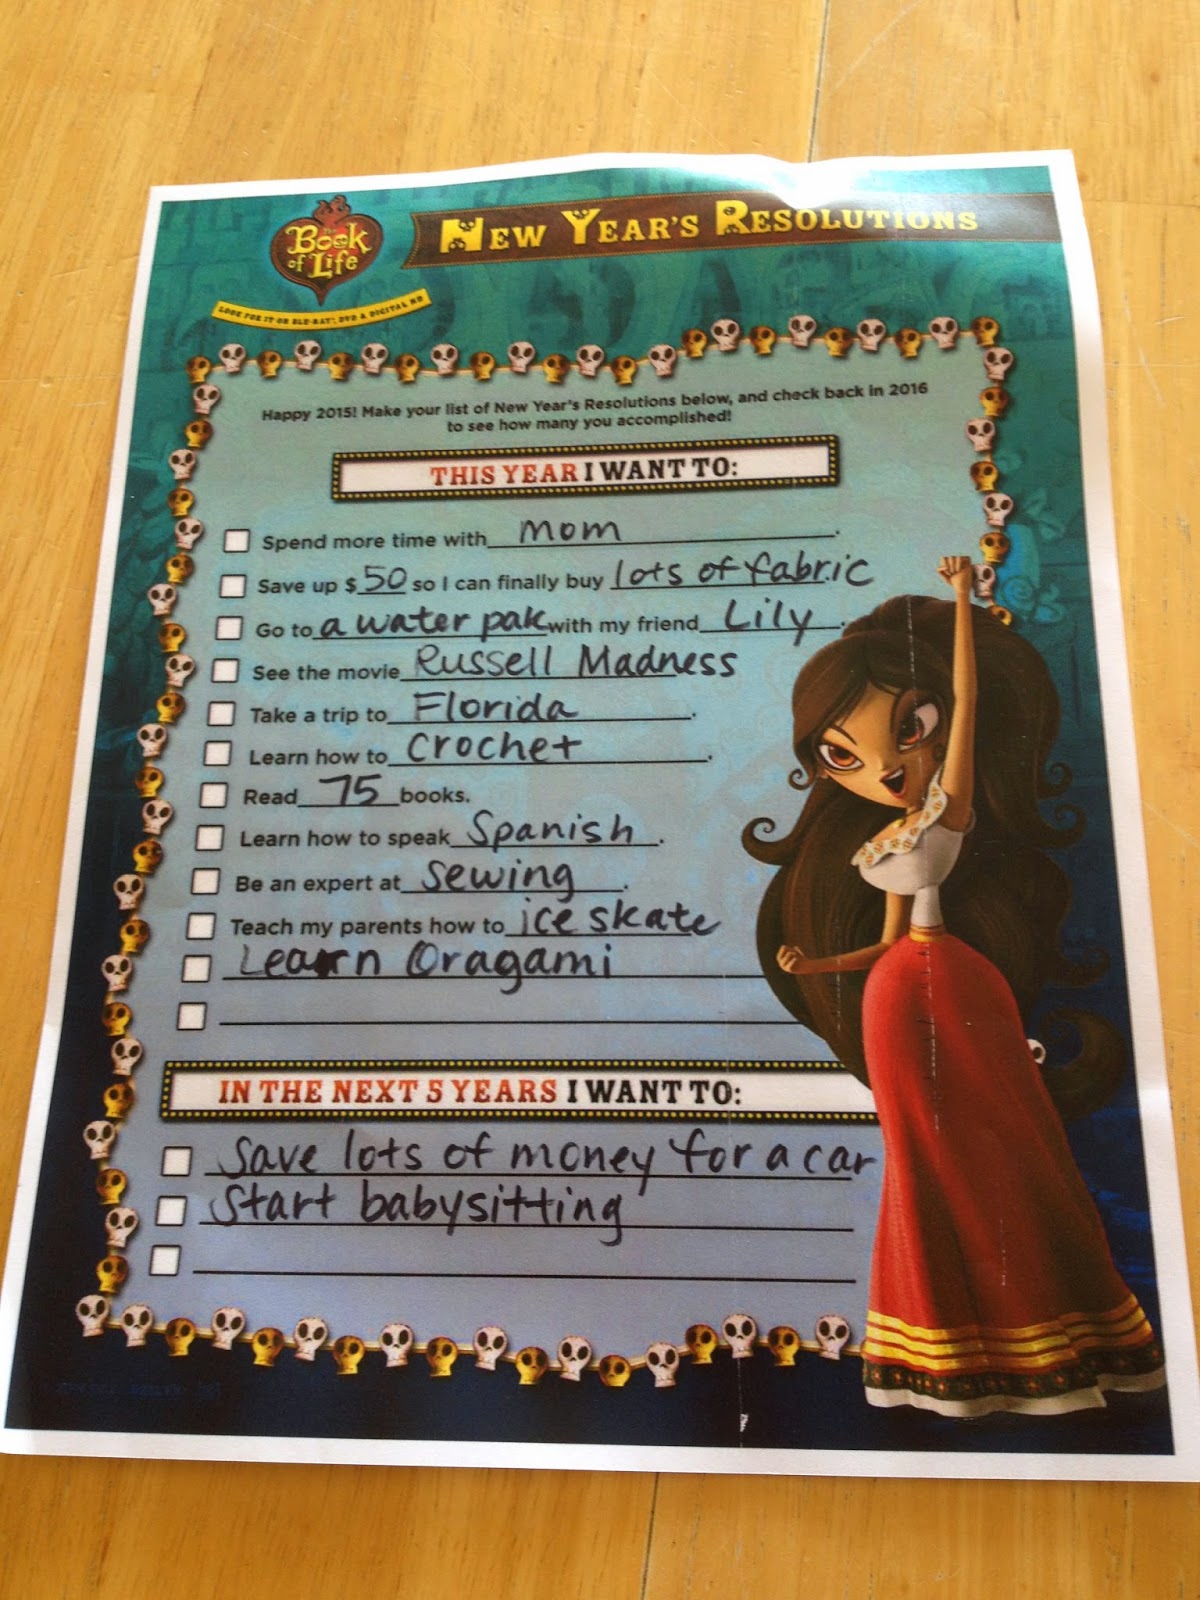 The Book of Life
LOOK FOR IT ON BLU-RAY, DVD & DIGITAL HD
NEW YEAR'S RESOLUTIONS
Happy 2015! Make your list of New Year's Resolutions below, and check back in 2016
to see how many you accomplished!
THIS YEAR I WANT TO:
Spend more time with mom.
Save up $50 so I can finally buy lots of fabric
Go to a water pak with my friend Lily.
See the movie Russell Madness
Take a trip to Florida.
Learn how to crochet.
Read 75 books.
Learn how to speak Spanish.
Be an expert at sewing.
Teach my parents how to ice skate
Learn Oragami
IN THE NEXT 5 YEARS I WANT TO:
Save lots of money for a car
Start babysitting